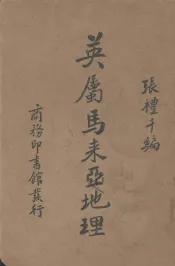 張禮千編
英屬馬来亞地理
商務印書館發行